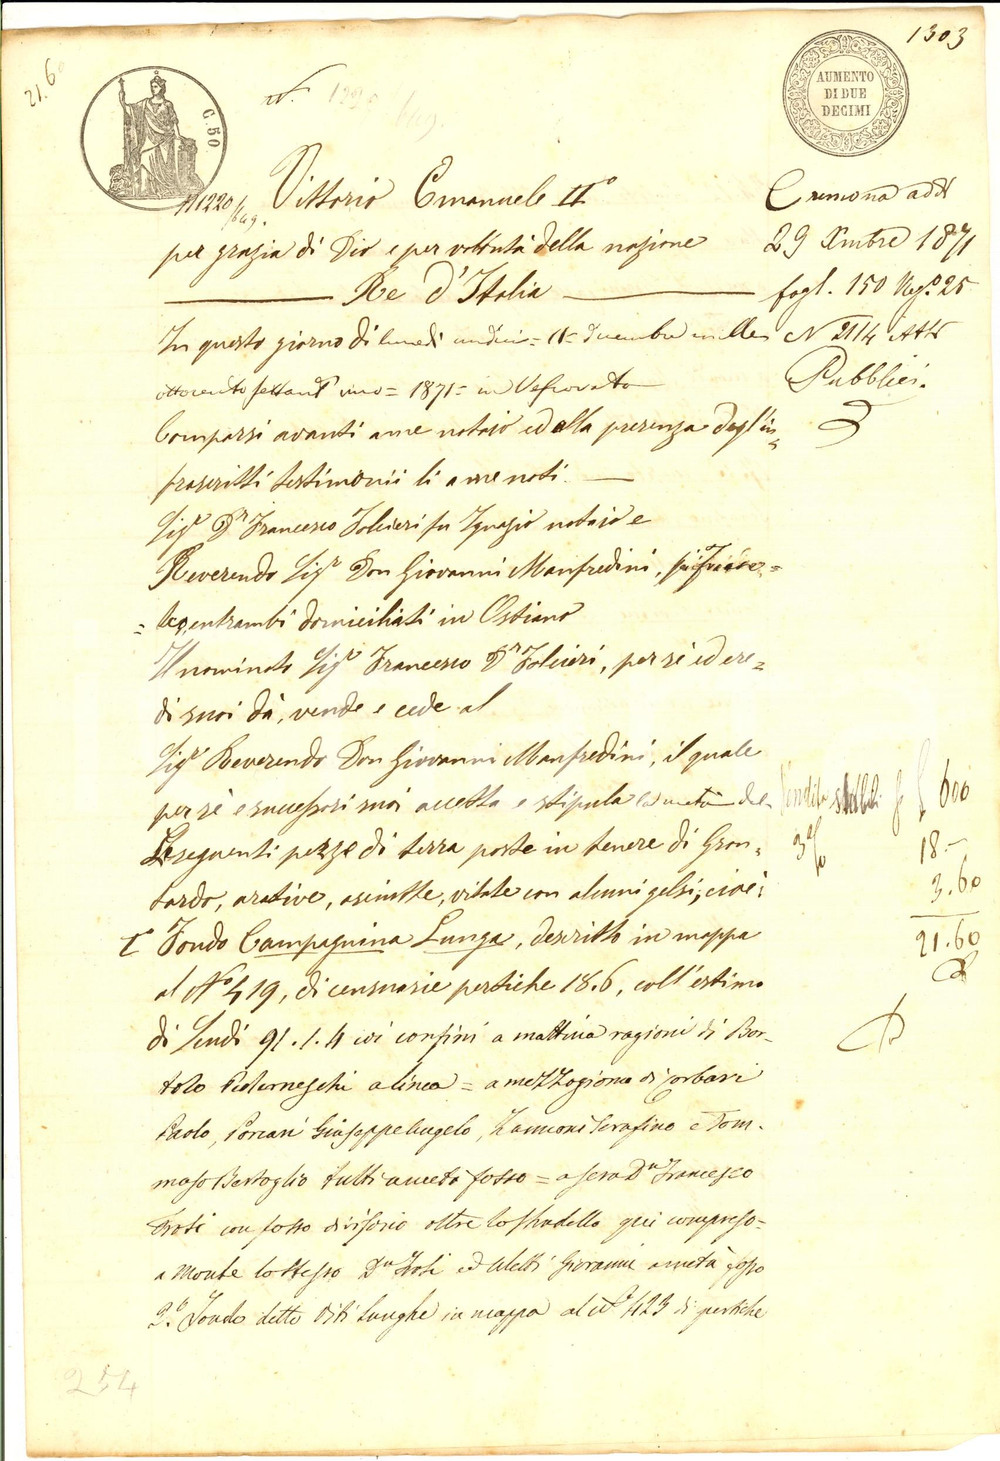 1303
21.60
C. 50
AUMENTO
DI DUE
DECIMI
N. 1220
N 1220
Vittorio Emanuele II°
per grazia di Dio e per volontà della nazione
Re d'Italia
Cremona addì
29 Xmbre 1871
fogl. 150 Reg.° 25
N 2114 Atti
Pubblici.
In questo giorno di lunedi undici = 11 = dicembre mille
ottocento settant'uno = 1871 = in Vescovato
Comparsi avanti a me notajo ed alla presenza degl'in=
frascritti testimonii li a me noti.
Sigr Dr Francesco Folcieri fu Ignazio notajo e
Reverendo Sigr Don Giovanni Manfredini,
entrambi domiciliati in Ostiano
Il nominato Sigr Francesco Dr Folcieri, per sé ed ere=
di suoi dà, vende e cede al
Sigr Reverendo Don Giovanni Manfredini, il quale
per sè e successori suoi accetta e stipula la metà del
Le seguenti pezze di terra poste in tenere di Gron=
tardo, arative, asciutte, vitate con alcuni gelsi, cioè:
Vendita stabili 600
3 %
18.-
3.60
21.60
I° Fondo Campagnina Lunga, descritto in mappa
al N° 419, di censuarie pertiche 18.6, coll'estimo
di Scudi 91.1.4 coi confini a mattina ragioni di Bor-
tolo a linea = a mezzogiorno di
Paolo, Giuseppe Angelo, Zannoni Serafino e Tom-
maso Bertoglio tutti a metà fosso = a sera Dn Francesco
con fosso divisorio oltre lo stradello qui compreso =
a monte lo stesso Dn ed Giovanni a metà fosso
2.° Fondo detto Viti Lunghe in mappa al N° 423 di pertiche
254